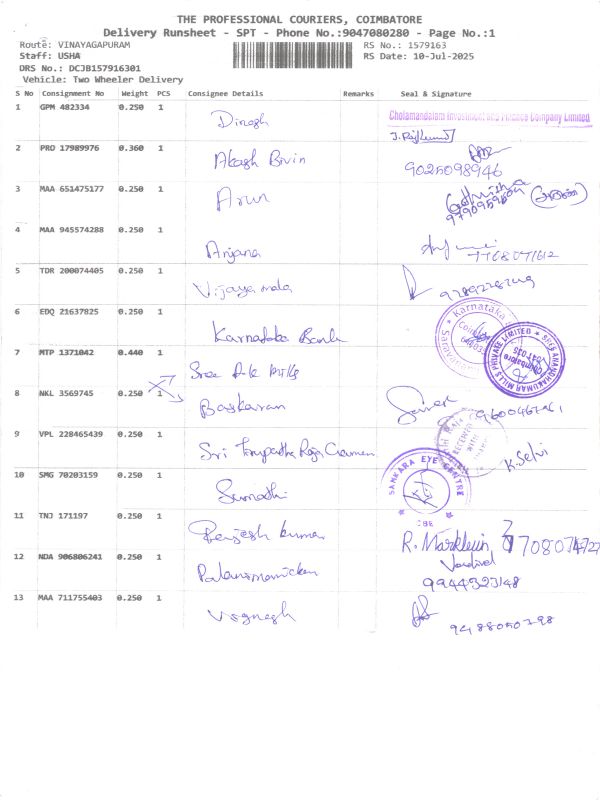 THE PROFESSIONAL COURIERS, COIMBATORE
Delivery Runsheet - SPT - Phone No.:9047080280 - Page No.:1
Route: VINAYAGAPURAM RS No.: 1579163
Staff: USHA RS Date: 10-Jul-2025
DRS No.: DCJB157916301
Vehicle: Two Wheeler Delivery
S No Consignment No Weight PCS Consignee Details Remarks Seal & Signature
1 GPM 482334 0.250 1 Dinesh Cholamandalam Investment and Finance Company Limited
2 PRO 17989976 0.360 1 Akash Bivin 9025098946
3 MAA 651475177 0.250 1 Arun
4 MAA 945574288 0.250 1 Anjana
5 TDR 200074405 0.250 1 Vijaya mala
6 EDQ 21637825 0.250 1 Karnataka Bank Karnataka
7 MTP 1371042 0.440 1 Sree MILLS PRIVATE LIMITED Coimbatore
8 NKL 3569745 0.250 1 Baskaran
9 VPL 228465439 0.250 1 Sri Raja RECEIVED WITH K. Selvi
10 SMG 70203159 0.250 1 Sumathi SANKARA EYE CENTRE CBE
11 TNJ 171197 0.250 1 kumar R.
12 NDA 906806241 0.250 1 Palanimanickam 9944323148
13 MAA 711755403 0.250 1 Vignesh 9488050798